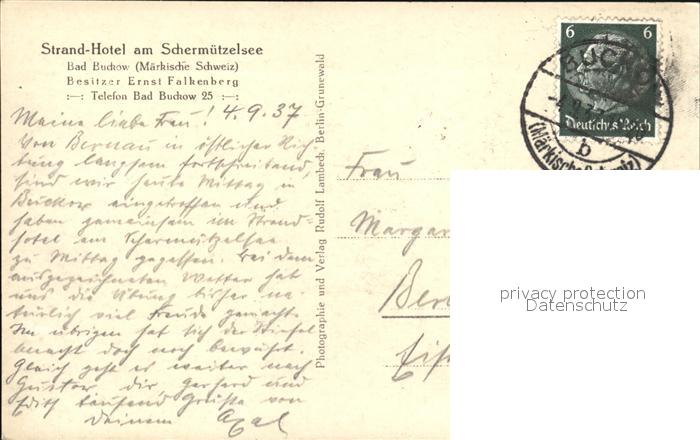 Strand-Hotel am Schermützelsee
Bad Buckow (Märkische Schweiz)
Besitzer Ernst Falkenberg
:—: Telefon Bad Buckow 25 :—:
Meine liebe Frau! 4.9.37
Von Bernau in östlicher Rich-
tung langsam fortschreitend,
sind wir heute Mittag in
Buckow eingetroffen und
haben gemeinsam im Strand-
hotel am Schermützelsee
zu Mittag gegessen. Bei dem
ausgezeichneten Wetter hat
uns die Übung bisher na-
türlich viel Freude gemacht.
Im übrigen hat sich der Stiefel
doch noch bewährt.
Gleich geht es weiter nach
dir, Gerhard und
Edith tausend Grüße von
Deinem Axel
Photographie und Verlag Rudolf Lambeck, Berlin-Grunewald
6 6
Deutsches Reich
BUCKO
(Märkische Schweiz)
b
Frau
Margar
Ber
privacy protection
Datenschutz